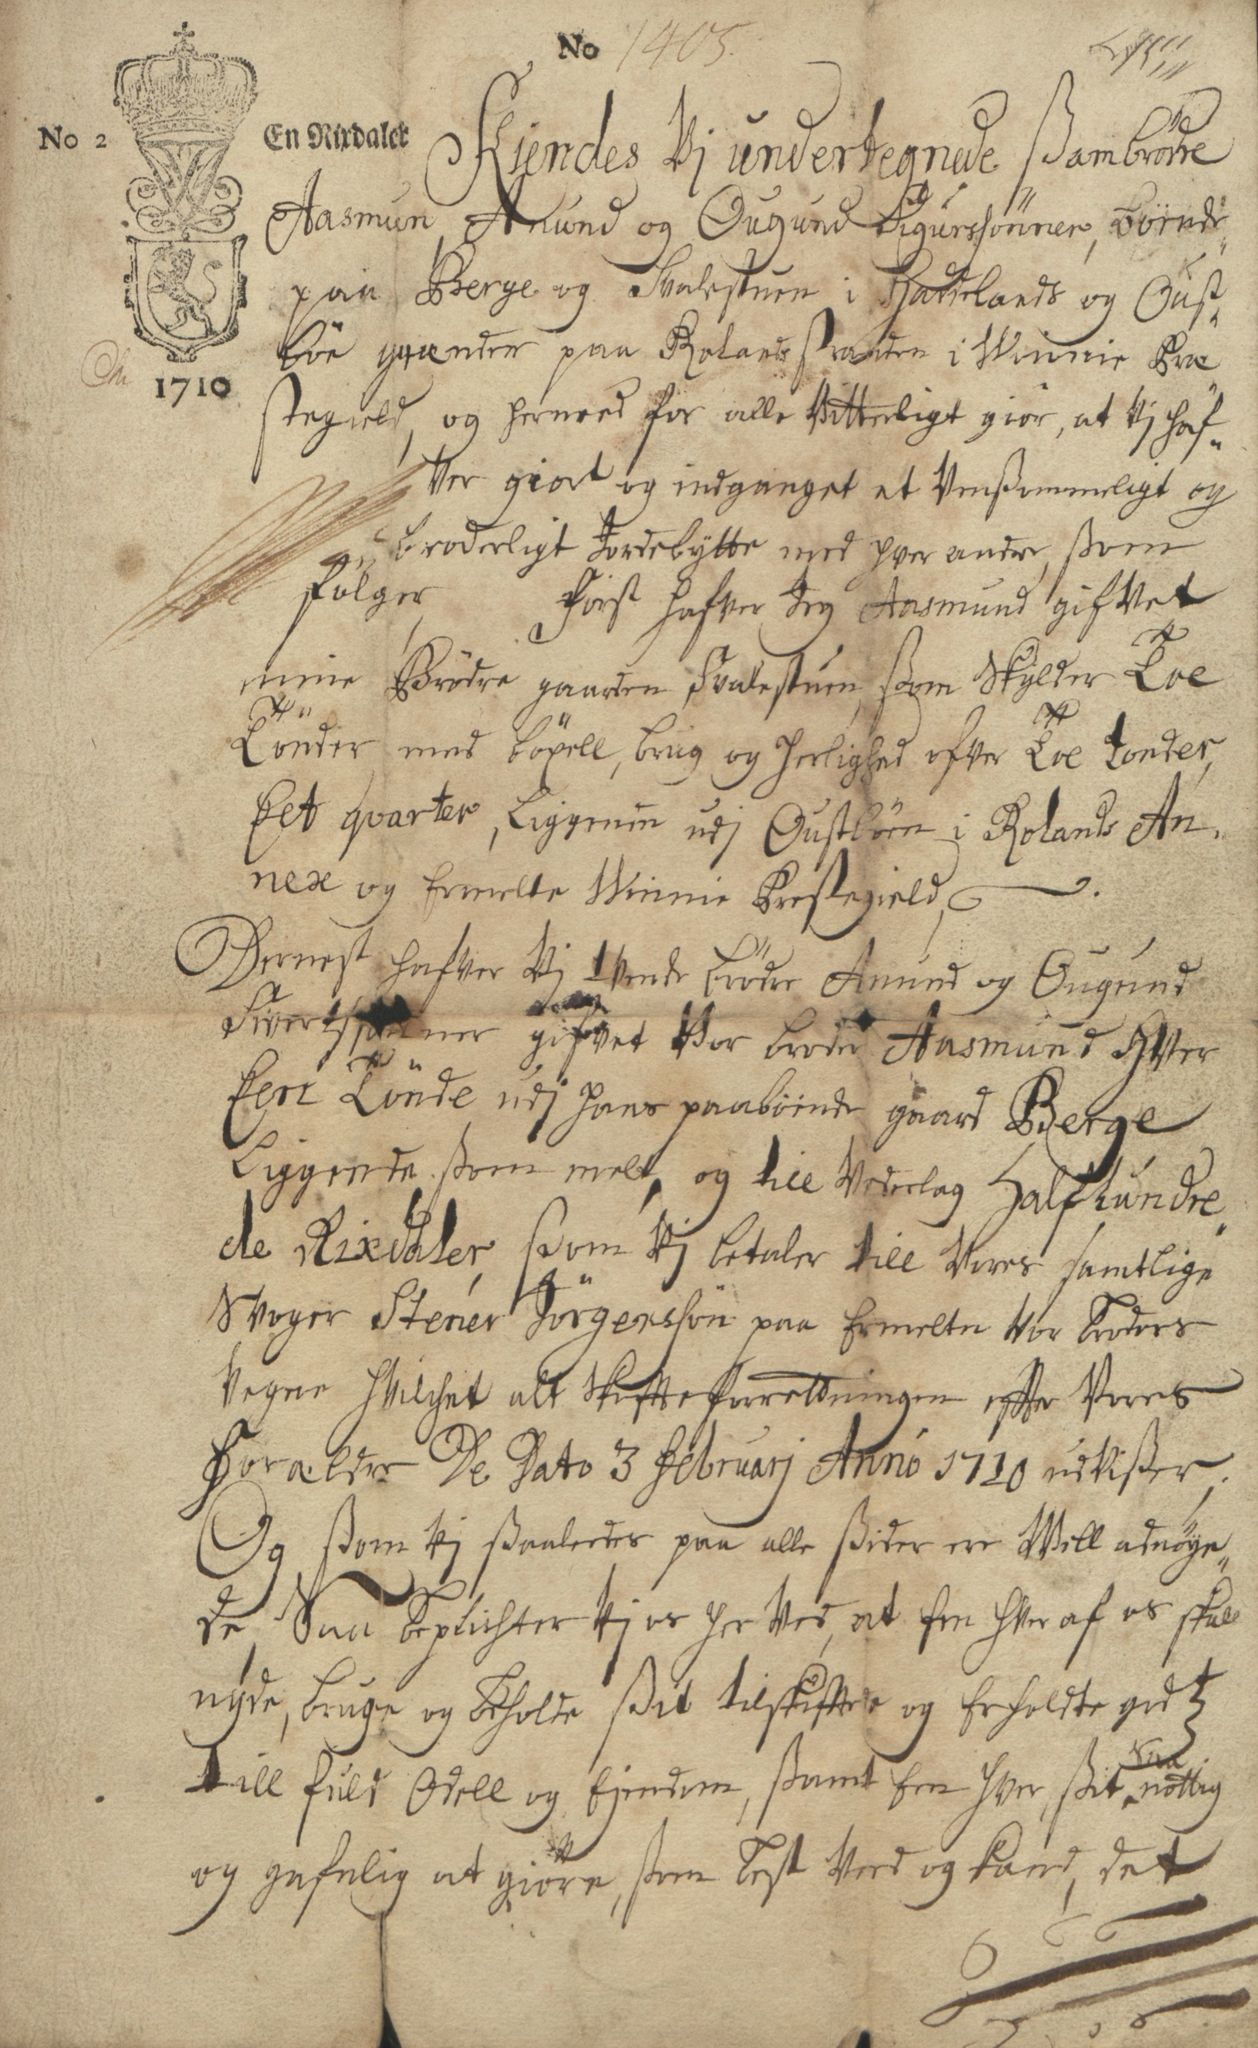 No 1405.
No 2
En Rixdaler
1710
Kiendes Vj undertegnede Sambrødre
Aasmun, Anund og Ougund Sigurssönner, boende
paa Berge og Svalestuen i Haddelands og Oust-
böe grænder paa Rolandsstranden i Winnie Præ
stegield, og hermed for alle Vitterligt giör, at Vj haf-
ver giort og indganget et Vensommeligt og
broderligt Jordebÿtte med hverandre, som
fölger, Först hafver Jeg Aasmund gifvet
mine Brödre gaarden Svalestuen, som Skÿlder Toe
Tönder med böxell, brug og herlighed ofver Toe tonder,
Eet qvarter, Liggende udj Oustböen i Rolands An-
nex og Ermelte Winnie Prestegield,
Dernest hafver Vj tvende brödre Anund og Ougund
Sivertssönner gifvet Vor broder Aasmund Hver
Een Tönde udj hans paaboende gaard Berge
Liggende som melt, og till Vederlag Halfhundre
de Rixdaler, som Vj betaler till Vores samtlige
Svoger Stener Jörgenssön paa Ermelte Vor Broders
Vegne hvilchet alt Skiftteforretningen efter Vores
Forældre De Dato 3 Februarj Anno 1710 udviser,
Og som Vj saaledes paa alle sider ere Well adnöÿe-
de, Saa beplichter Vj os her Ved, at Een hver af os skall
nÿde, bruge og beholde sit tilskiftede og Erholdte god
till fuld Odell og Ejendom, samt Een hver, sit saa nöttig
og gafnlig at giöre, som best Veed og kand, det